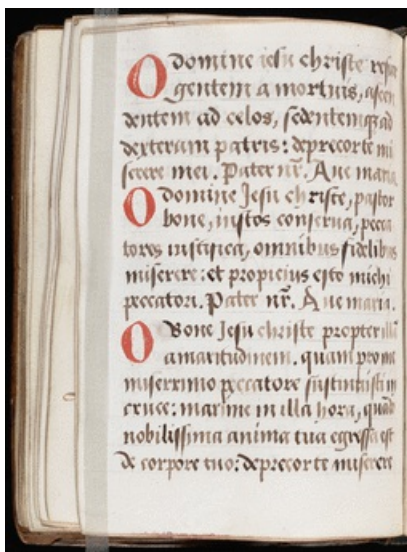 O domine iesu christe resur
gentem a mortuis, ascen
dentem ad celos, sedentemq; ad
dexteram patris: deprecor te mi
serere mei. Pater nr̄. Aue maria
O domine Jesu christe, pastor
bone, iustos conserua, pecca
tores iustifica, omnibus fidelibus
miserere: et propicius esto michi
peccatori. Pater nr̄. Aue maria.
O Bone Jesu christe propter illā
amaritudinem, quam pro me
miserrimo peccatore sustinuisti in
cruce: maxime in illa hora, quādo
nobilissima anima tua egressa est
de corpore tuo: deprecor te miserere